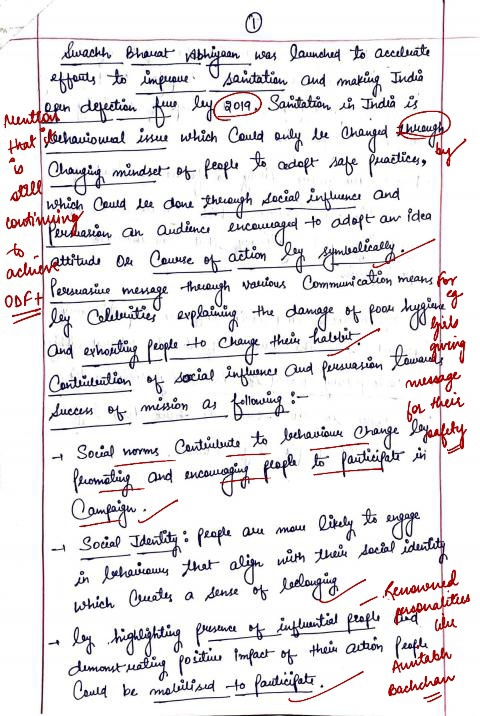 1
Swachh Bharat Abhiyaan was launched to accelerate
efforts to improve sanitation and making India
open defection free by 2019. Sanitation in India is
behavioural issue which could only be changed through
by
Changing mindset of people to adopt safe practices,
which could be done through social influence and
persuasion an audience encouraged to adopt an idea
attitude or course of action by symbolically.
Persuasive message through various communication means
by Celebrities explaining the damage of poor hygiene
and exhorting people to change their habbit.
Contribution of social influence and persuasion towards
success of mission as following :-
Mention
that it
is
still
continuing
to
achieve
ODF+
For
eg
girls
giving
message
for their
safety
→ Social norms contribute to behaviour change by
promoting and encouraging people to participate in
Campaign.
→ Social Identity: people are more likely to engage
in behaviours that align with their social identity
which creates a sense of belonging
→ by highlighting presence of influential people and
demonstrating positive impact of their action people
could be mobilised to participate.
- Renowned
personalities
like
Amitabh
Bachchan